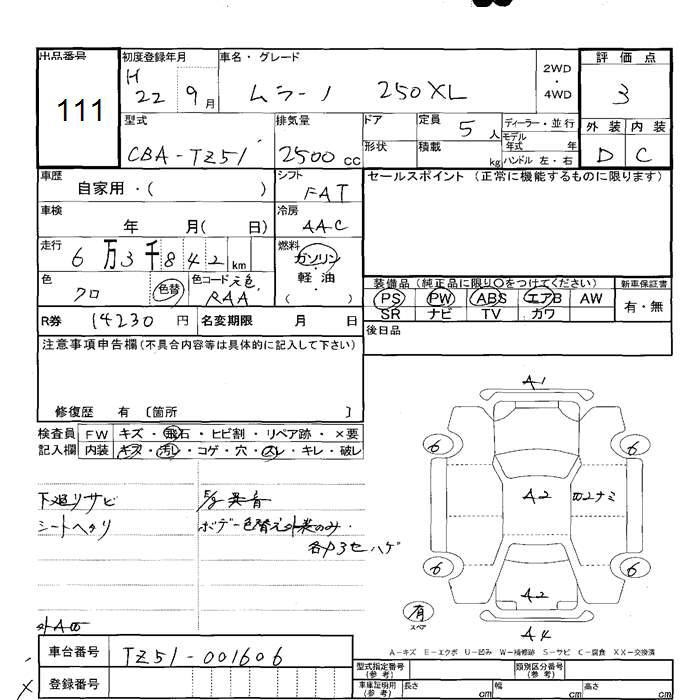 出品番号
111
初度登録年月
H 22 9月
車名・グレード
ムラーノ 250XL
2WD
・
4WD
評価点
3
外装 内装
D C
型式
CBA-TZ51
排気量
2500cc
ドア
形状
定員 5人
積載 kg
ディーラー・並行
モデル年式 年
ハンドル 左・右
車歴
自家用・( )
シフト
FAT
セールスポイント(正常に機能するものに限ります)
車検
年 月( 日)
冷房
AAC
走行
6万3千842km
燃料
ガソリン
軽・油
( )
色
クロ
色替
色コード 元色
RAA
装備品(純正品に限り○をつけてください)
新車保証書
PS PW ABS エアB AW
有・無
SR ナビ TV カワ
R券 14230円
名変期限 月 日
後日品
注意事項申告欄(不具合内容等は具体的に記入して下さい)
修復歴 有 〔箇所 〕
検査員 FW キズ・飛石・ヒビ割・リペア跡・×要
記入欄 内装 キズ・汚レ・コゲ・穴・スレ・キレ・破レ
下廻りサビ
シートヘタリ
異音
ボデー色替え外装のみ.
各部ハゲ
A1
6 6
A2
ナミ
6 6
A2
有
スペア
A4
A-キズ E-エクボ U-凹み W-補修跡 S-サビ C-腐食 XX-交換済
車台番号
TZ51-001606
登録番号
型式指定番号
(参考)
類別区分番号
(参考)
車庫証明用
(参考)
長さ cm
幅 cm
高さ cm